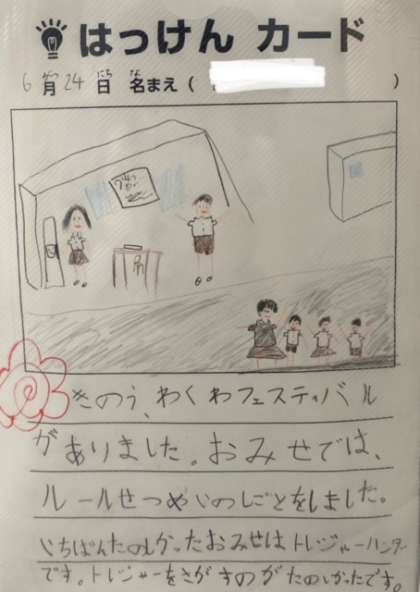 はっけん カード
6月24日 名まえ( )
きのう、わくわフェスティバル
がありました。おみせでは、
ルールせつめいのしごとをしました。
いちばんたのしかったおみせはトレジャーハンター
です。トレジャーをさがすのがたのしかったです。